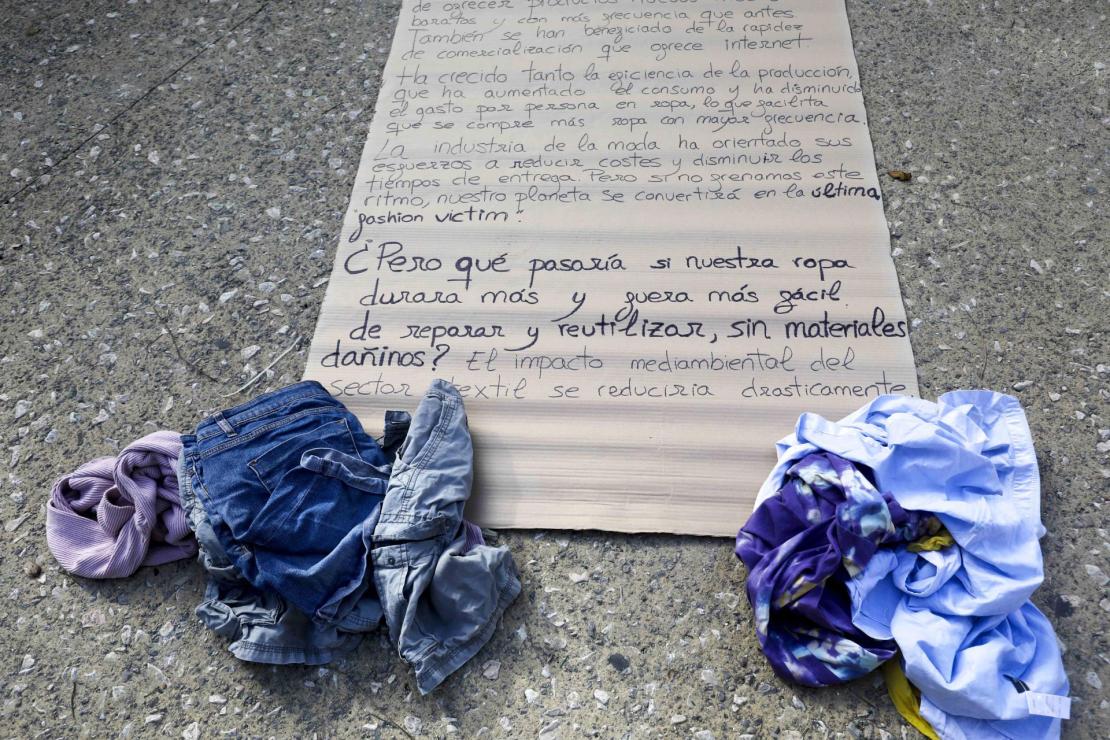 de ofrecer productos nuevos más
baratos y con más frecuencia que antes.
También se han beneficiado de la rapidez
de comercialización que ofrece internet.
Ha crecido tanto la eficiencia de la producción,
que ha aumentado el consumo y ha disminuido
el gasto por persona en ropa, lo que facilita
que se compre más ropa con mayor frecuencia.
La industria de la moda ha orientado sus
esfuerzos a reducir costes y disminuir los
tiempos de entrega. Pero si no frenamos este
ritmo, nuestro planeta se convertirá en la última
fashion victim".
¿Pero qué pasaría si nuestra ropa
durara más y fuera más fácil
de reparar y reutilizar, sin materiales
dañinos? El impacto mediambiental del
sector textil se reduciria drasticamente